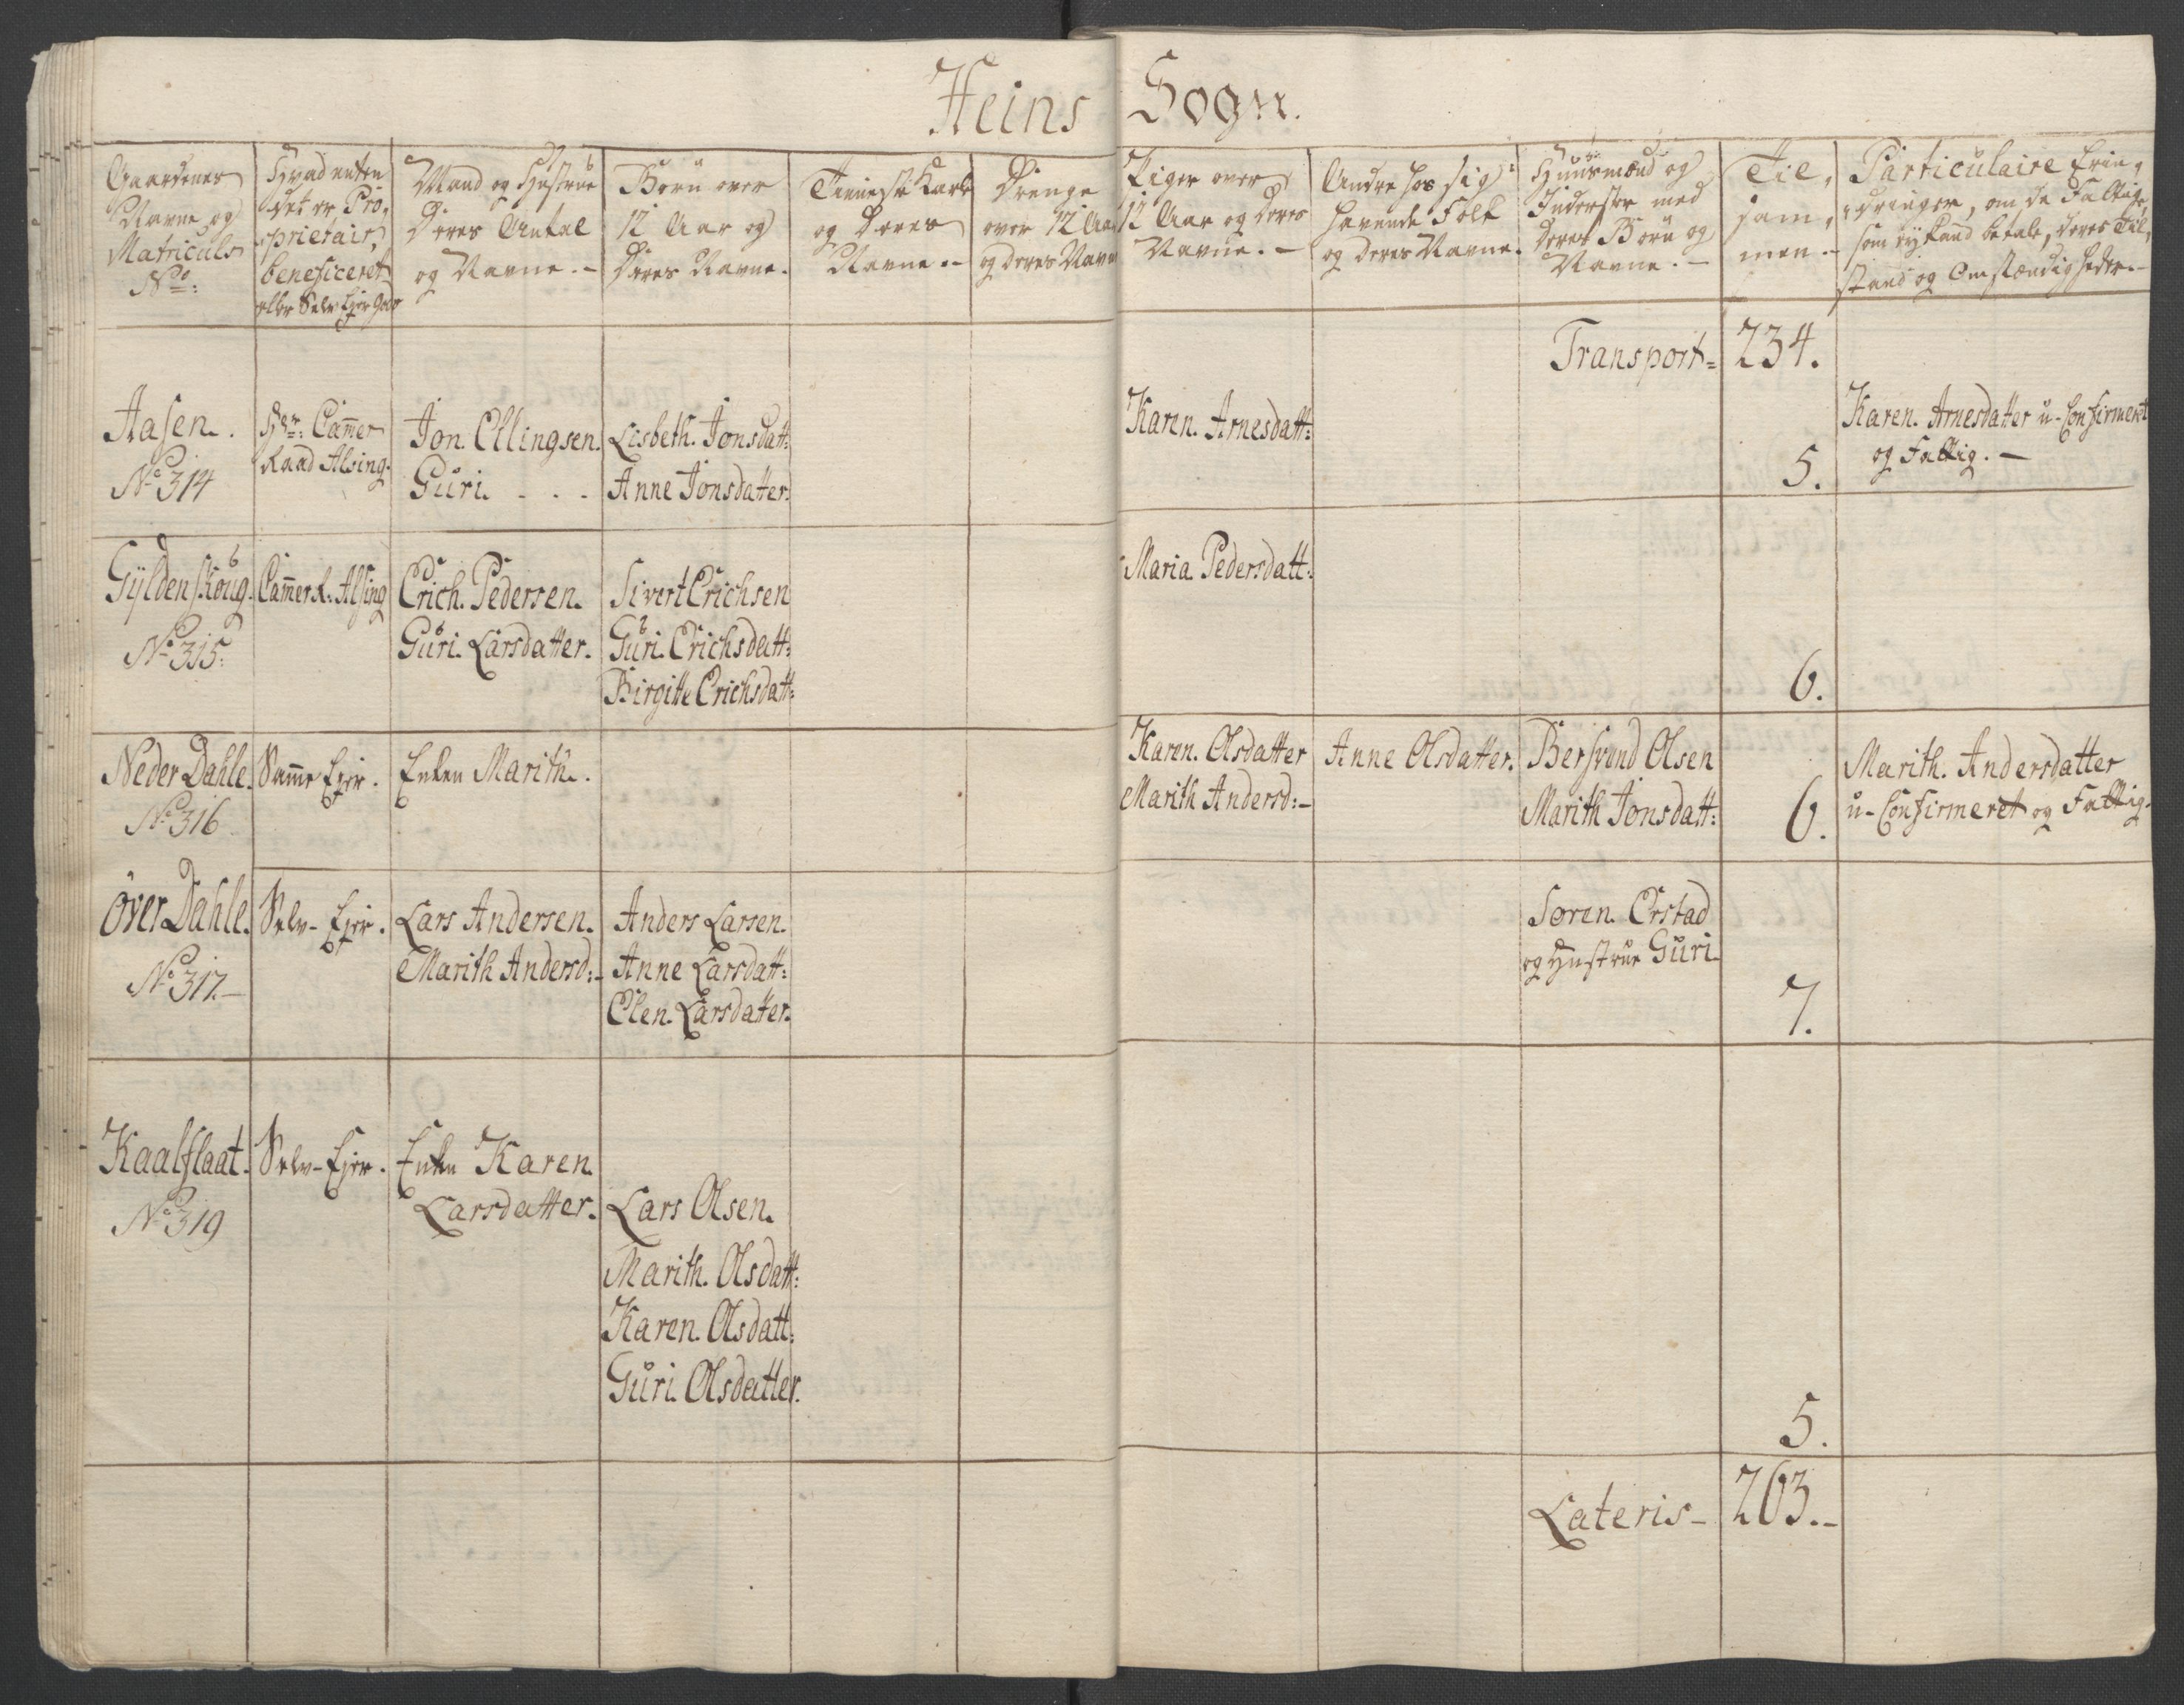 Heins Sogn.
Gaardenes
Navne og
Matriculs
No:
Hvad enten
det er Pro-
prietair,
beneficeret
eller Selv Ejer Gods
Mand og Hustrue
Deres Antal
og Navne. -
Børn over
12 Aar og
Deres Navne.
Tieneste Karle
og Deres
Navne. -
Drenge
over 12 Aar
og deres Navne
Piger over
12 Aar og deres
Navne. -
Andre hos sig
havende Folk
og deres Navne.
Huusmænd og
Inderster med
deres Børn og
Navne. -
Til-
sam-
men. -
Particulaire Erin-
dringer, om de Fattige,
som ey kand betale, deres Til-
stand og Omstændigheder. -
Transport = 234.
Aasen.
No 314
Hr: Cammer
Raad Alsing.
Jon. Ellingsen.
Guri. - . -
Lisbeth. Jonsdatt:
Anne Jonsdatter.
Karen. Arnesdatt:
5.
Karen. Arnesdatter u-Confirmeret
og Fattig. -
Gyldenskoug.
No 315.
Cammer R: Alsing
Erich. Pedersen.
Guri. Larsdatter.
Sivert Erichsen
Guri. Erichsdatt:
Birgitte Erichsdatt:
Maria Pedersdatt:
6.
Neder Dahle.
No 316
Samme Ejer.
Enken Marith.
Karen. Olsdatter
Marith Andersd: -
Anne Olsdatter.
Bersvend Olsen
Marith Jonsdatt:
6.
Marith. Andersdatter
u-Confirmeret og Fattig.
Over Dahle.
No 317. -
Selv-Ejer.
Lars Andersen.
Marith Andersd: -
Anders Larsen.
Anne Larsdatt:
Elen. Larsdatter.
Søren. Erstad
og Hustrue Guri.
7.
Kaalflaat.
No 319
Selv-Ejer.
Enken Karen
Larsdatter.
Lars Olsen.
Marith. Olsdatt:
Karen. Olsdatt:
Guri. Olsdatter.
5.
Lateris - 263. -